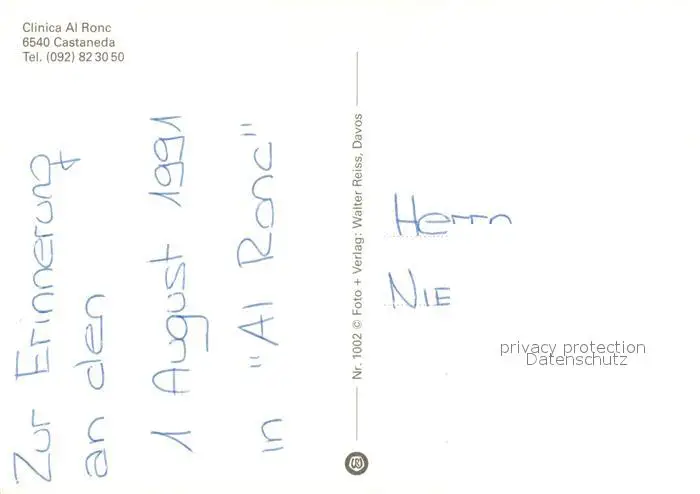 Clinica Al Ronc
6540 Castaneda
Tel. (092) 82 30 50
Zur Erinnerung
an den
1 August 1991
in "Al Ronc"
Nr. 1002 © Foto + Verlag: Walter Reiss, Davos
Herrn
NIE
privacy protection
Datenschutz